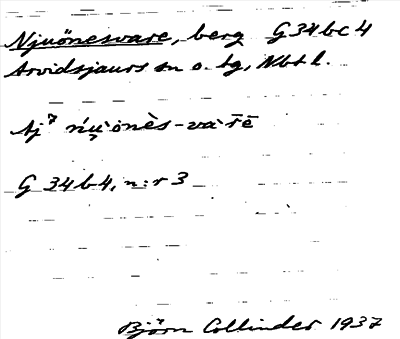 Njuönesvare, berg G34bc4
Arvidsjaurs sn o. tg, Nbt l.
Aj⁷ ńṷ·önès-va·r̄ē
G 34b4, n:r 3
Björn Collinder 1937